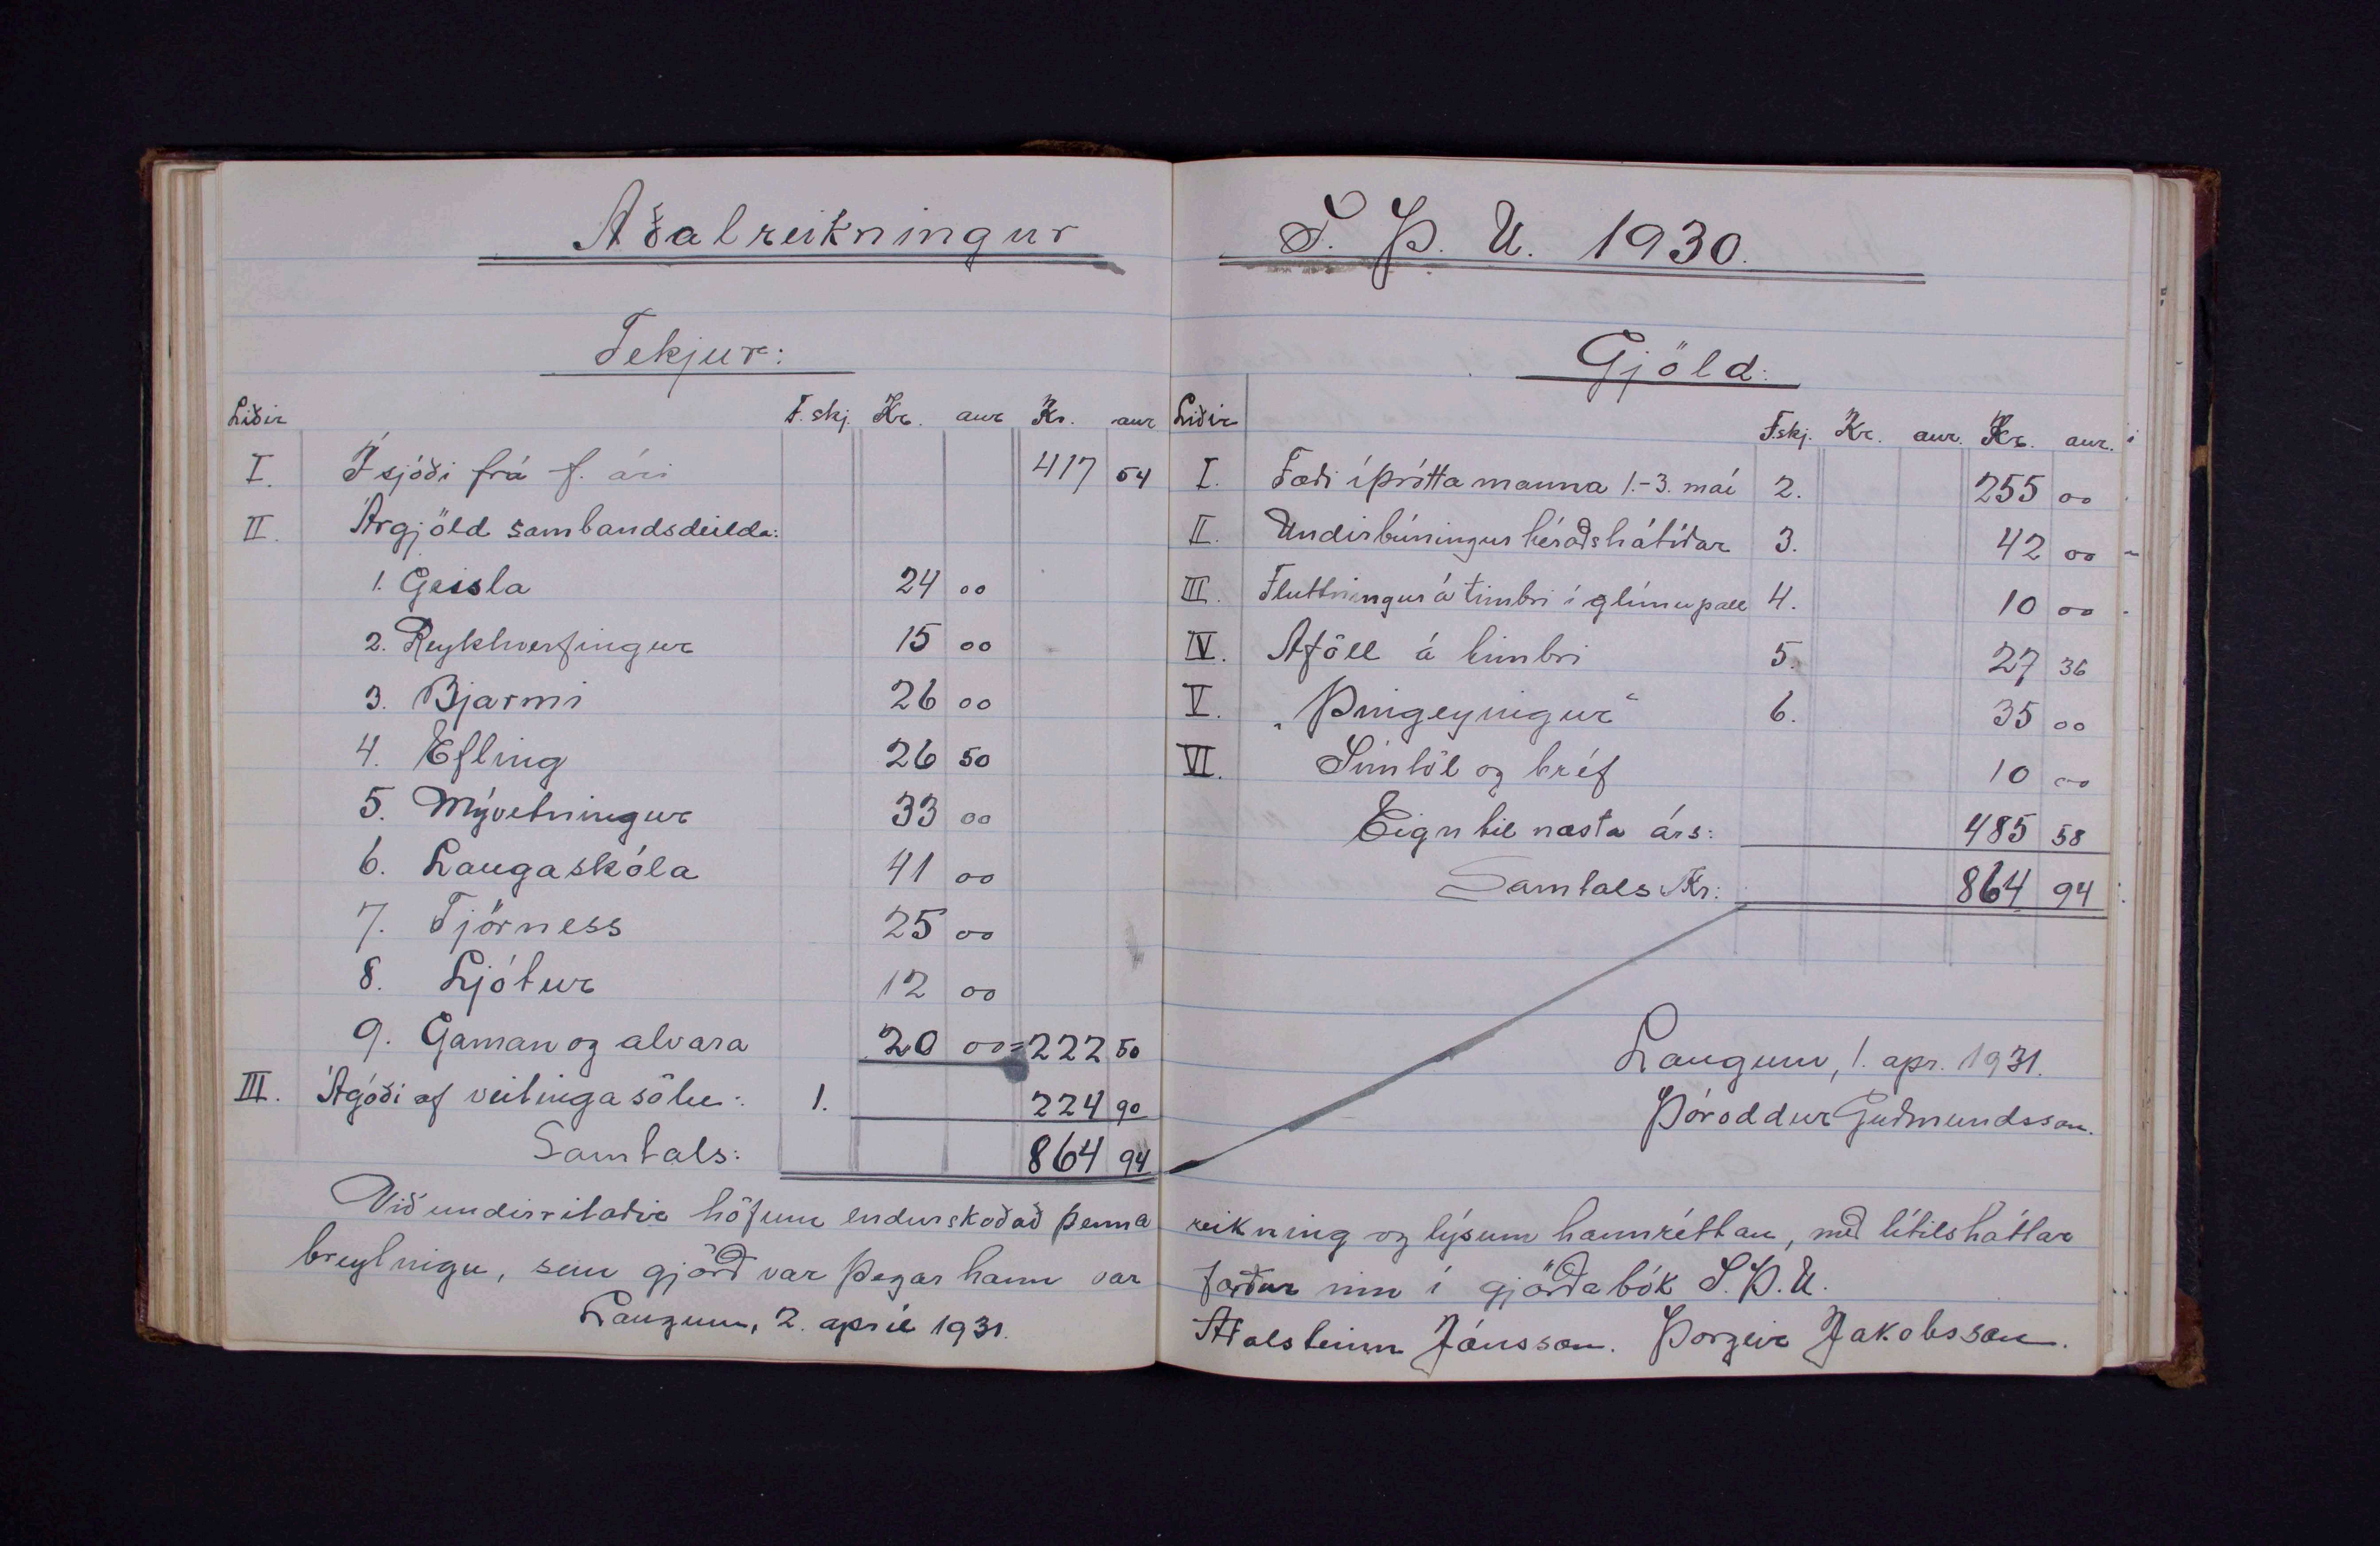 Aðalreikningur
Tekjur:
Liðir F.skj. Kr. aur Kr. aur
I. Í sjóði frá f. ári 417 54
II. Árgjöld sambandsdeilda:
1. Geisla 24 00
2. Reykhverfingur 15 00
3. Bjarmi 26 00
4. Efling 26 50
5. Mývetningur 33 00
6. Laugaskóla 41 00
7. Tjörness 25 00
8. Ljótur 12 00
9. Gaman og alvara 20 00 = 222 50
III. Ágóði af veitingasölu: 1. 224 90
Samtals: 864 94
Við undirritaðir höfum endurskoðað þenna
breytingu, sem gjörð var þegar hann var
Laugum, 2. apríl 1931.
S. Þ. U. 1930.
Gjöld:
Liðir F.skj. Kr. aur. Kr. aur.
I. Fæði íþróttamanna 1.-3. maí 2. 255 00
II. Undirbúningur héraðshátíðar 3. 42 00
III. Fluttningur á timbri í glímupall 4. 10 00
IV. Aföll á timbri 5. 27 36
V. „Þingeyingur“ 6. 35 00
VI. Símtöl og bréf 10 00
Eign til næsta árs: 485 58
Samtals Kr: 864 94
Laugum, 1. apr. 1931.
Þóroddur Guðmundsson.
reikning og lýsum hann réttan, með lítilsháttar
færður inn í gjörðabók S.Þ.U.
Aðalsteinn Jónsson. Þorgeir Jakobsson.